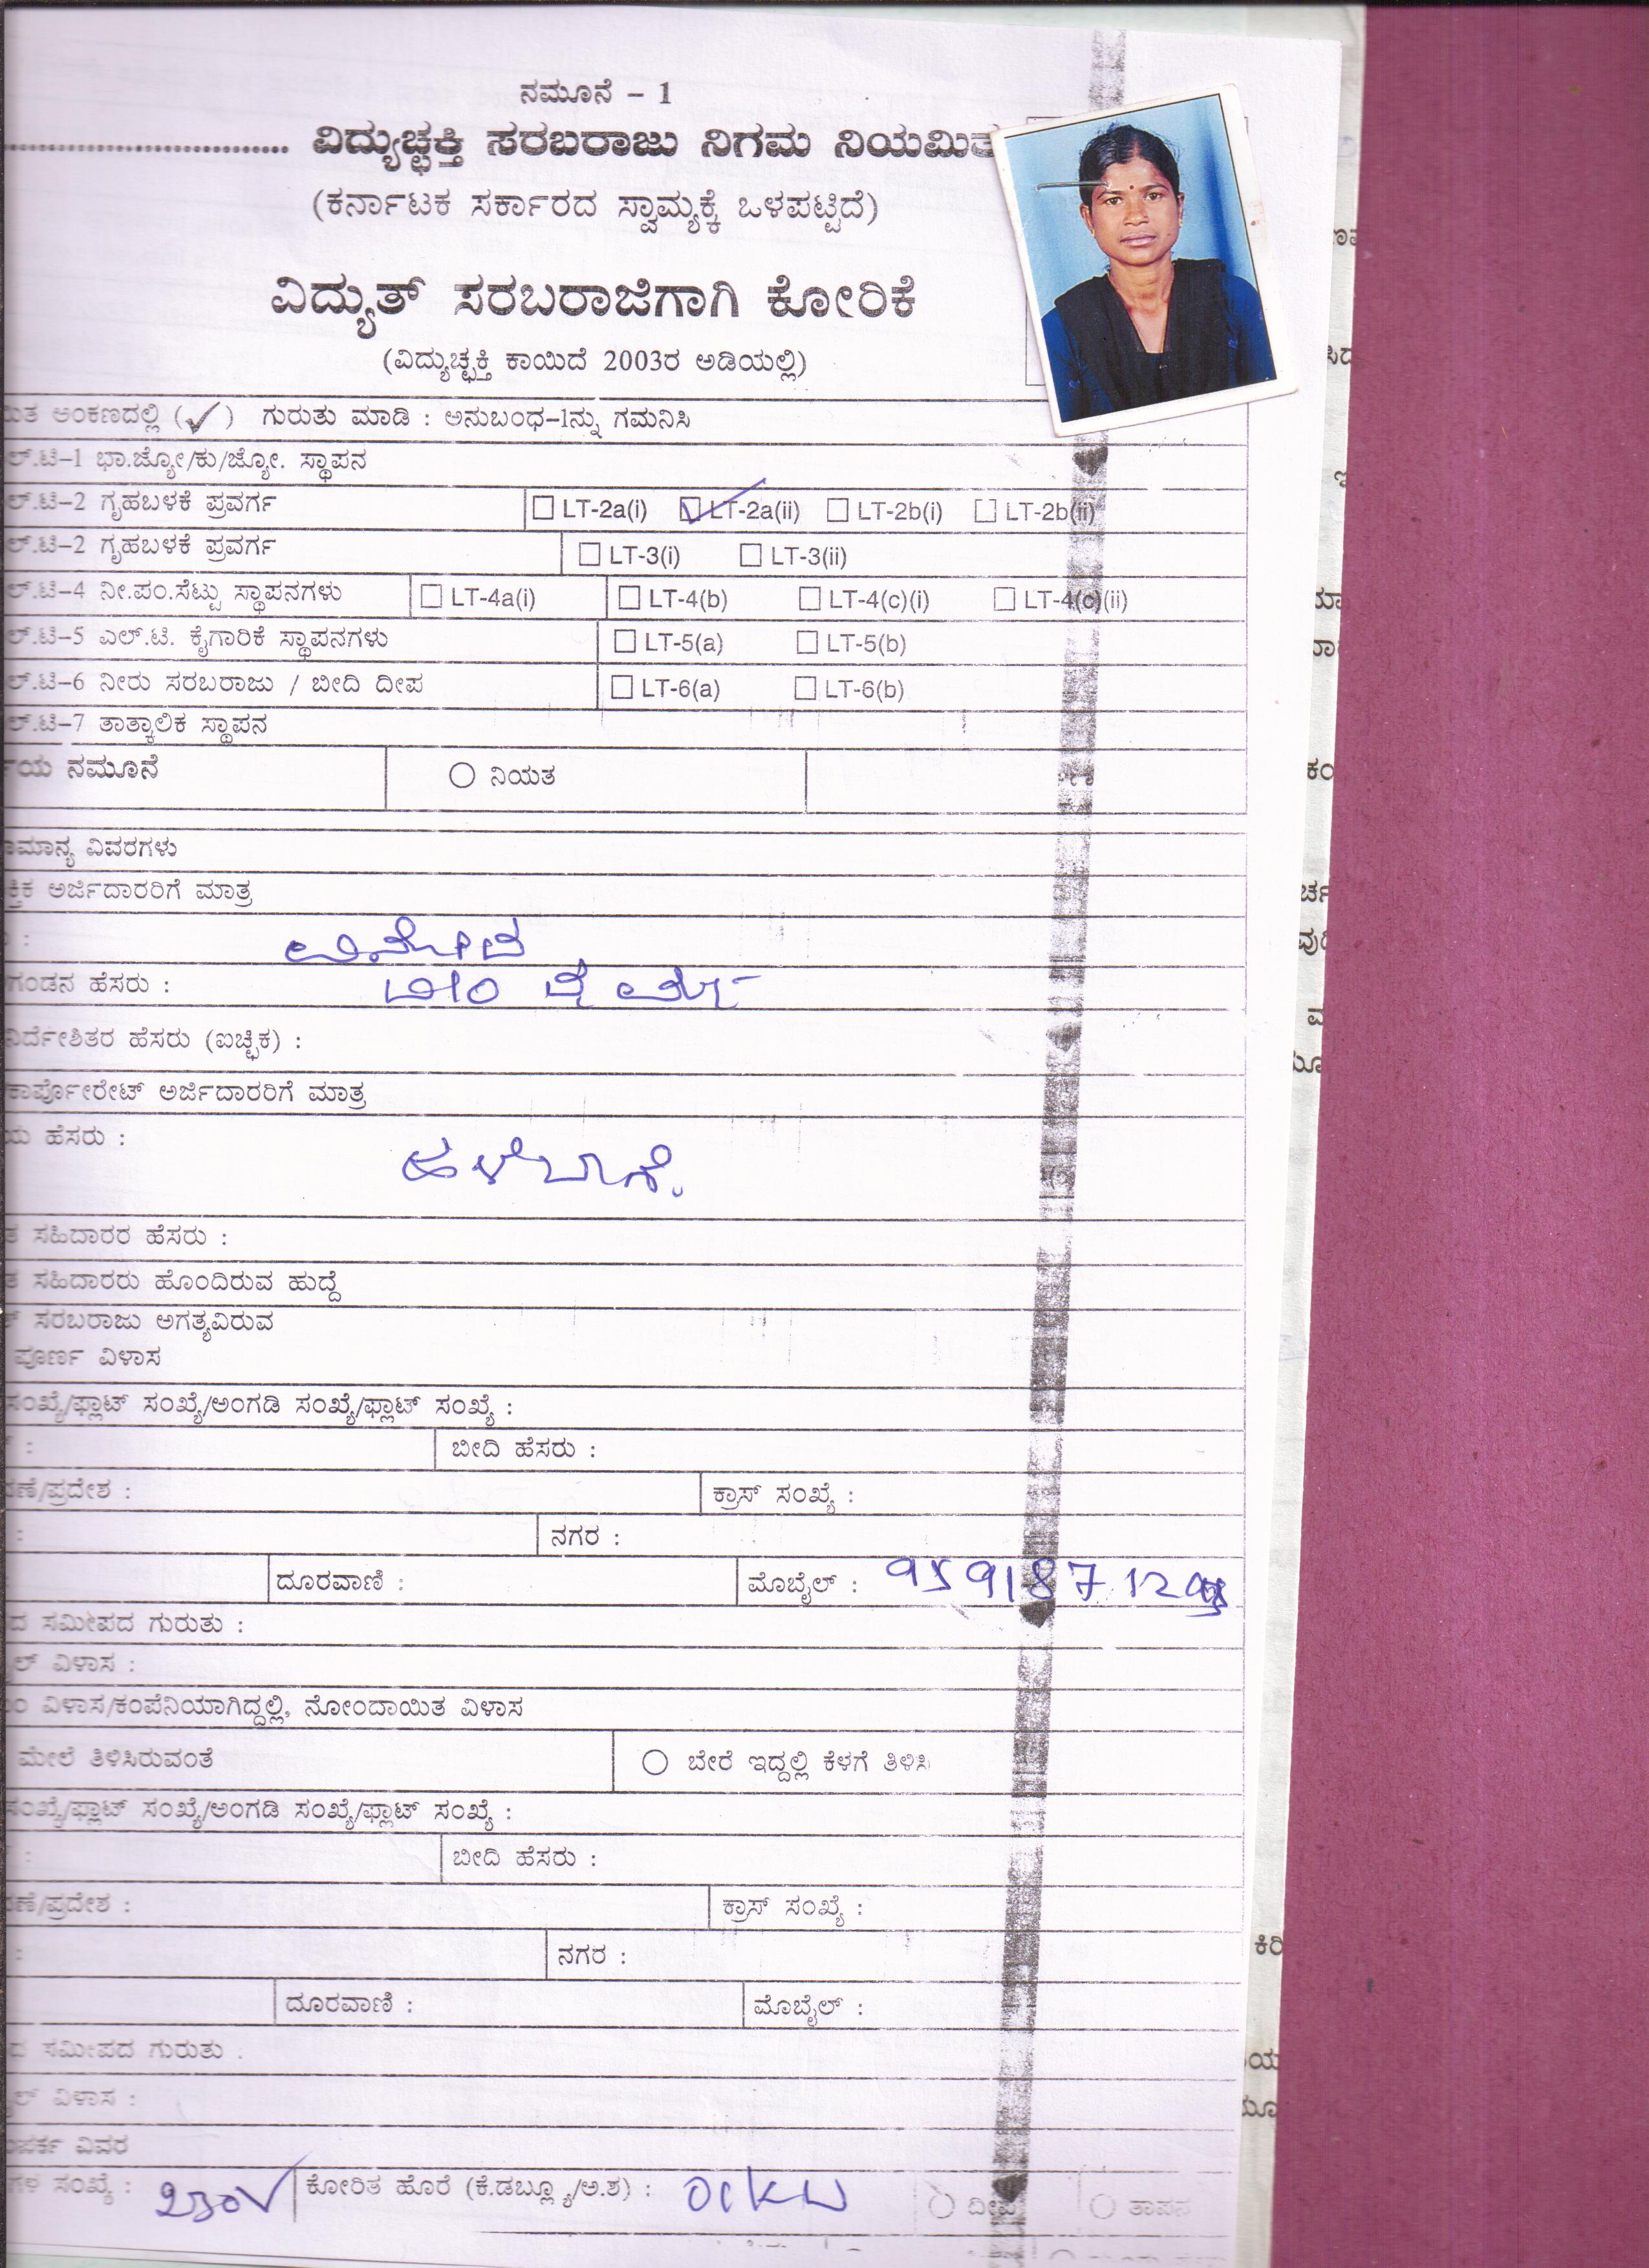 ನಮೂನೆ – 1
.............................. ವಿದ್ಯುಚ್ಛಕ್ತಿ ಸರಬರಾಜು ನಿಗಮ ನಿಯಮಿತ
(ಕರ್ನಾಟಕ ಸರ್ಕಾರದ ಸ್ವಾಮ್ಯಕ್ಕೆ ಒಳಪಟ್ಟಿದೆ)
ವಿದ್ಯುತ್ ಸರಬರಾಜಿಗಾಗಿ ಕೋರಿಕೆ
(ವಿದ್ಯುಚ್ಛಕ್ತಿ ಕಾಯಿದೆ 2003ರ ಅಡಿಯಲ್ಲಿ)
ಅಂಕಣದಲ್ಲಿ (✓) ಗುರುತು ಮಾಡಿ : ಅನುಬಂಧ–1ನ್ನು ಗಮನಿಸಿ
ಲ್.ಟಿ–1 ಭಾ.ಜ್ಯೋ/ಕು/ಜ್ಯೋ. ಸ್ಥಾಪನ
ಲ್.ಟಿ–2 ಗೃಹಬಳಕೆ ಪ್ರವರ್ಗ LT-2a(i) LT-2a(ii) LT-2b(i) LT-2b(ii)
ಲ್.ಟಿ–2 ಗೃಹಬಳಕೆ ಪ್ರವರ್ಗ LT-3(i) LT-3(ii)
ಲ್.ಟಿ–4 ನೀ.ಪಂ.ಸೆಟ್ಟು ಸ್ಥಾಪನಗಳು LT-4a(i) LT-4(b) LT-4(c)(i) LT-4(c)(ii)
ಲ್.ಟಿ–5 ಎಲ್.ಟಿ. ಕೈಗಾರಿಕೆ ಸ್ಥಾಪನಗಳು LT-5(a) LT-5(b)
ಲ್.ಟಿ–6 ನೀರು ಸರಬರಾಜು / ಬೀದಿ ದೀಪ LT-6(a) LT-6(b)
ಲ್.ಟಿ–7 ತಾತ್ಕಾಲಿಕ ಸ್ಥಾಪನ
ಯ ನಮೂನೆ ನಿಯತ
ಮಾನ್ಯ ವಿವರಗಳು
ಕ್ತಿಕ ಅರ್ಜಿದಾರರಿಗೆ ಮಾತ್ರ
:
ಗಂಡನ ಹೆಸರು :
ನಿರ್ದೇಶಿತರ ಹೆಸರು (ಐಚ್ಛಿಕ) :
ಕಾರ್ಪೋರೇಟ್ ಅರ್ಜಿದಾರರಿಗೆ ಮಾತ್ರ
ಯ ಹೆಸರು : ಹಳೆಬಾಗೆ.
ತ ಸಹಿದಾರರ ಹೆಸರು :
ತ ಸಹಿದಾರರು ಹೊಂದಿರುವ ಹುದ್ದೆ
ಸರಬರಾಜು ಅಗತ್ಯವಿರುವ
ಪೂರ್ಣ ವಿಳಾಸ
ಸಂಖ್ಯೆ/ಫ್ಲಾಟ್ ಸಂಖ್ಯೆ/ಅಂಗಡಿ ಸಂಖ್ಯೆ/ಫ್ಲಾಟ್ ಸಂಖ್ಯೆ :
: ಬೀದಿ ಹೆಸರು :
ಣೆ/ಪ್ರದೇಶ : ಕ್ರಾಸ್ ಸಂಖ್ಯೆ :
: ನಗರ :
ದೂರವಾಣಿ : ಮೊಬೈಲ್ : 959187129
ದ ಸಮೀಪದ ಗುರುತು :
ಲ್ ವಿಳಾಸ :
ಂ ವಿಳಾಸ/ಕಂಪೆನಿಯಾಗಿದ್ದಲ್ಲಿ, ನೋಂದಾಯಿತ ವಿಳಾಸ
ಮೇಲೆ ತಿಳಿಸಿರುವಂತೆ ಬೇರೆ ಇದ್ದಲ್ಲಿ ಕೆಳಗೆ ತಿಳಿಸಿ
ಸಂಖ್ಯೆ/ಫ್ಲಾಟ್ ಸಂಖ್ಯೆ/ಅಂಗಡಿ ಸಂಖ್ಯೆ/ಫ್ಲಾಟ್ ಸಂಖ್ಯೆ :
: ಬೀದಿ ಹೆಸರು :
ಣೆ/ಪ್ರದೇಶ : ಕ್ರಾಸ್ ಸಂಖ್ಯೆ :
: ನಗರ :
ದೂರವಾಣಿ : ಮೊಬೈಲ್ :
ದ ಸಮೀಪದ ಗುರುತು :
ಲ್ ವಿಳಾಸ :
ಪರ್ಕ ವಿವರ
ಗಳ ಸಂಖ್ಯೆ : 230V ಕೋರಿತ ಹೊರೆ (ಕೆ.ಡಬ್ಲ್ಯೂ/ಅ.ಶ) : 01KW ದೀಪ ತಾಪನ